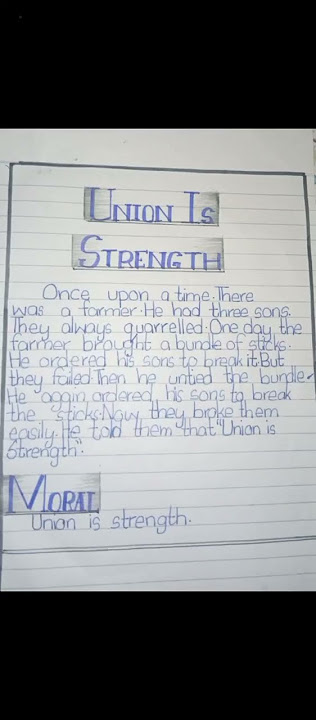 UNION IS
STRENGTH
Once upon a time. There
was a farmer. He had three sons.
They always quarrelled. One day the
farmer brought a bundle of sticks.
He ordered his sons to break it. But
they failed. Then he untied the bundle.
He again ordered his sons to break
the sticks. Now they broke them
easily. He told them that "Union is
Strength".
MORAL
Union is strength.